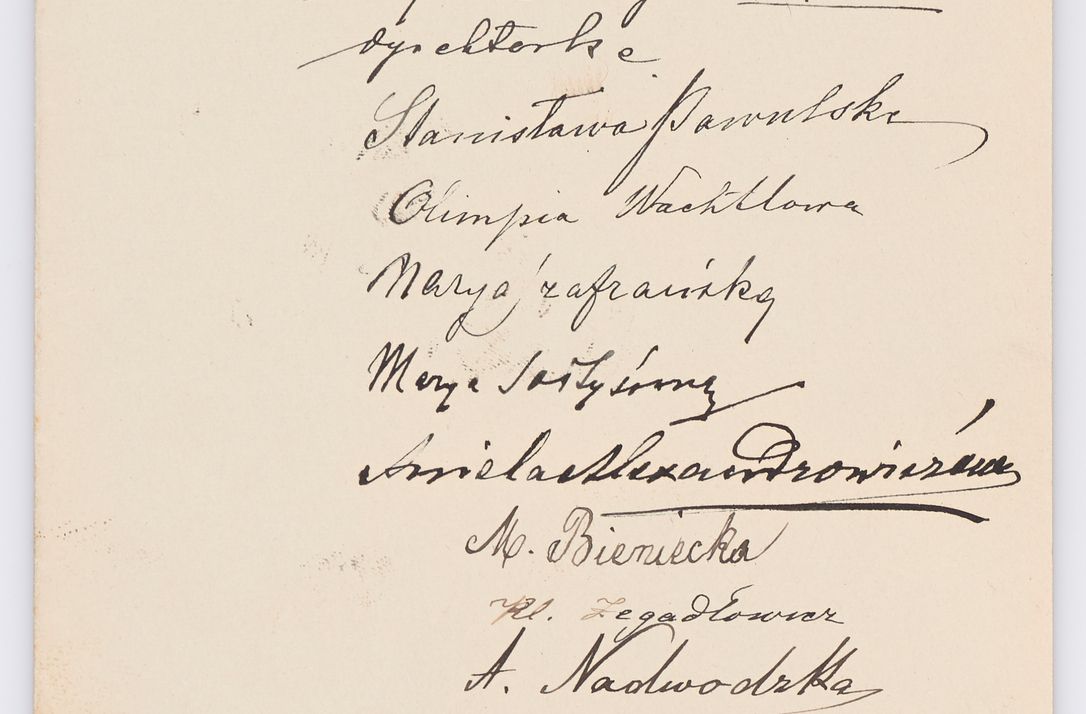 dyrektorka
Stanisława Pawulska
Olimpia Wachtlowa
Marya Szafrańska
Marya Sołtysówna
Aniela Alexandrowiczówna
M. Bieniecka
Kl. Zegadłowicz
A. Nadwodzka